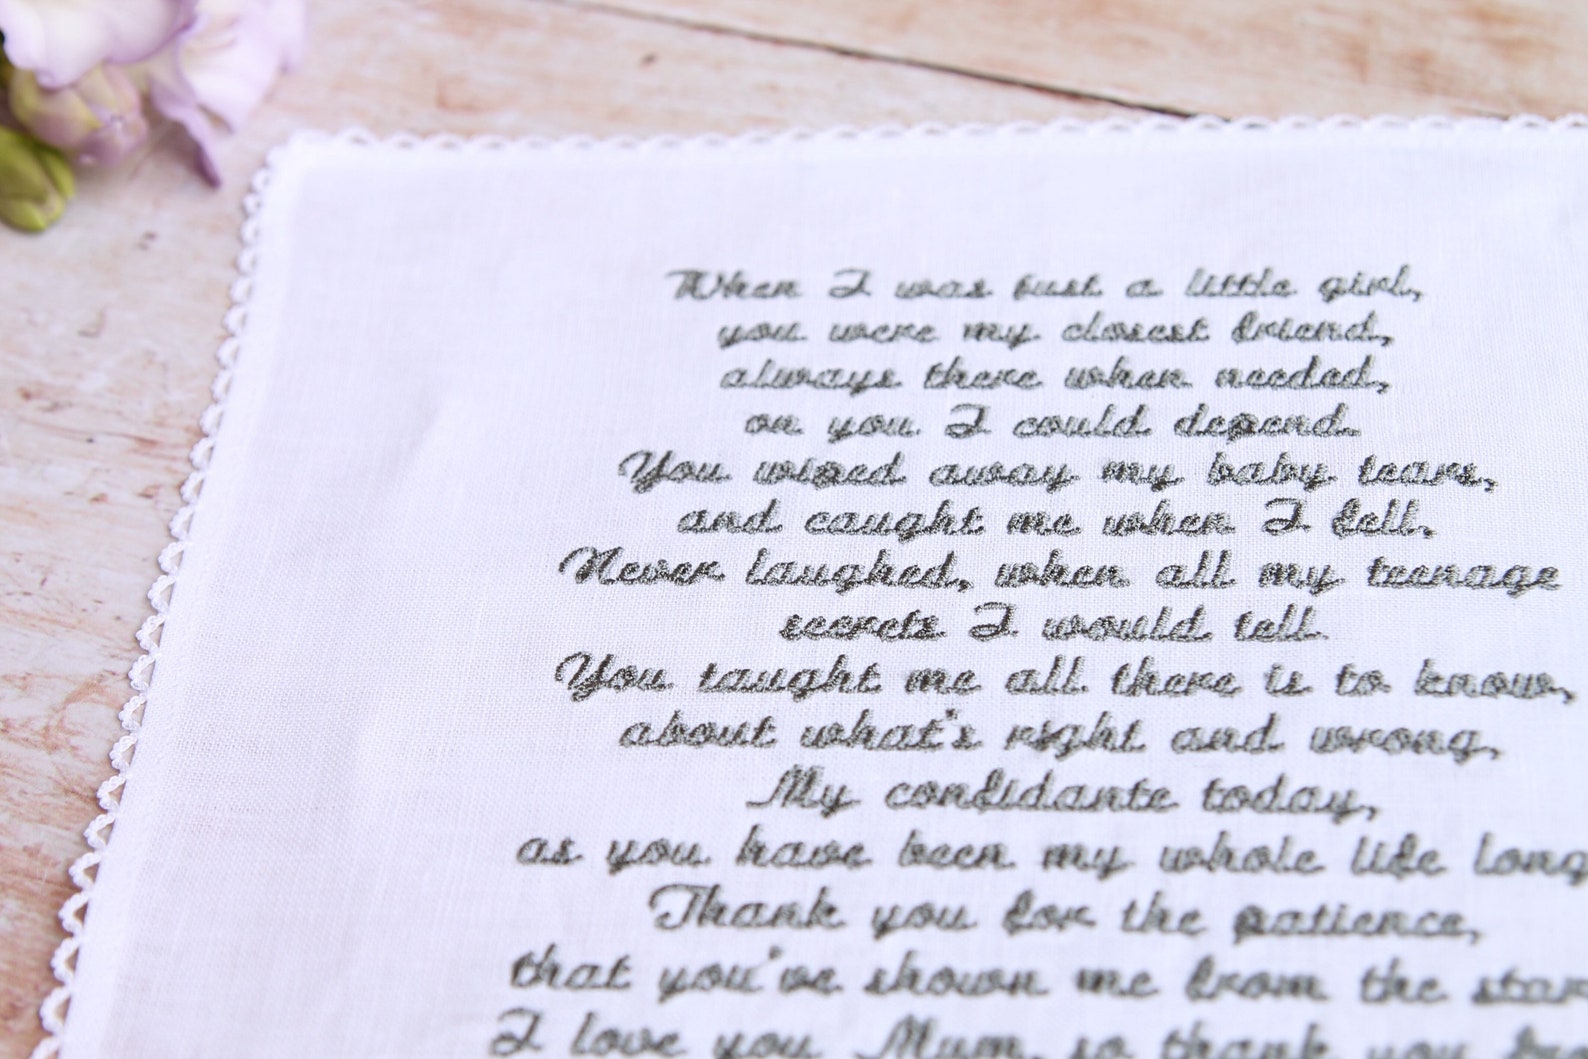 When I was just a little girl,
you were my closest friend,
always there when needed,
on you I could depend.
You wiped away my baby tears,
and caught me when I fell.
Never laughed, when all my teenage
secrets I would tell.
You taught me all there is to know,
about what's right and wrong,
My confidante today,
as you have been my whole life long
Thank you for the patience,
that you've shown me from the
I love you Mum, so thank you